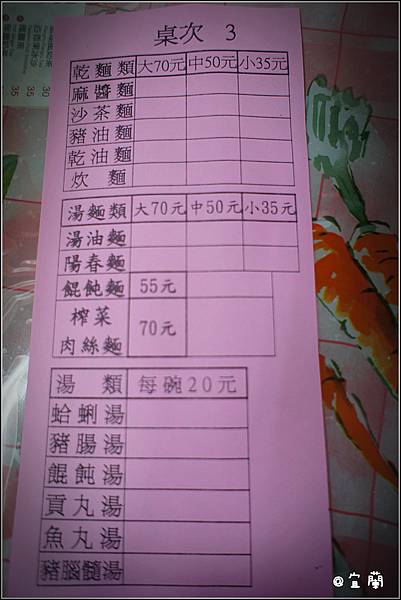 桌次 3
乾麵類 大70元 中50元 小35元
麻醬麵
沙茶麵
豬油麵
乾油麵
炊 麵
湯麵類 大70元 中50元 小35元
湯油麵
陽春麵
餛飩麵 55元
榨菜
肉絲麵 70元
湯 類 每碗20元
蛤蜊湯
豬腸湯
餛飩湯
貢丸湯
魚丸湯
豬腦髓湯
35
35
30
@宜蘭